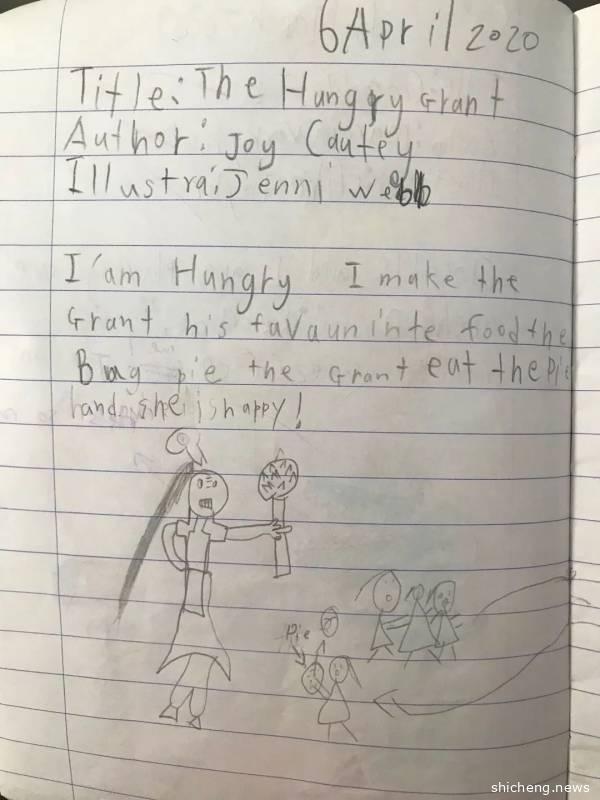 6 April 2020
Title: The Hungry Grant
Author: Joy Cautey
Illustrai Jenni webb
I'am Hungry I make the
Grant his favauninte food the
Bug pie the Grant eat the Pie
hand she is happy!
Pie
shicheng.news